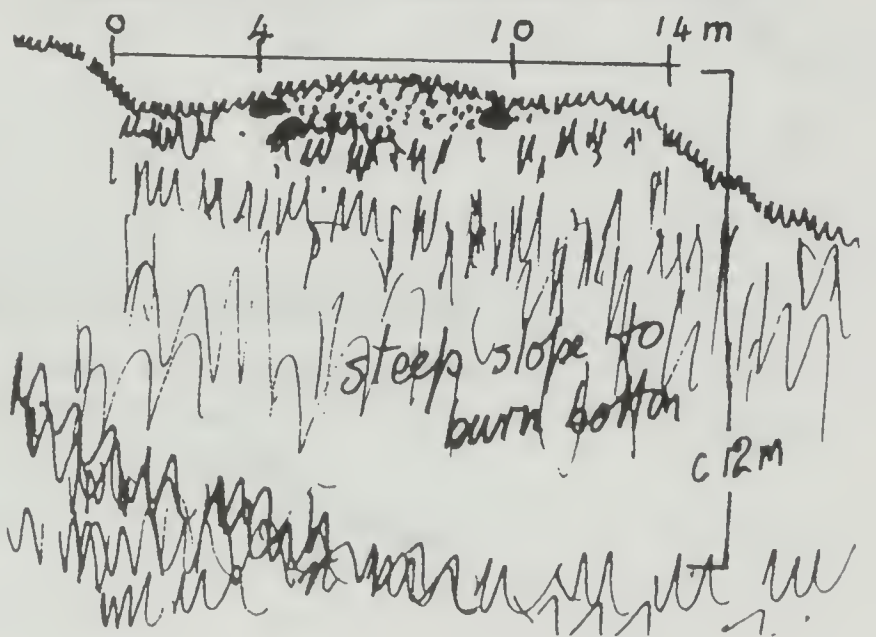 0 4 10 14 m
steep slope to
burn bottom
c 12 m